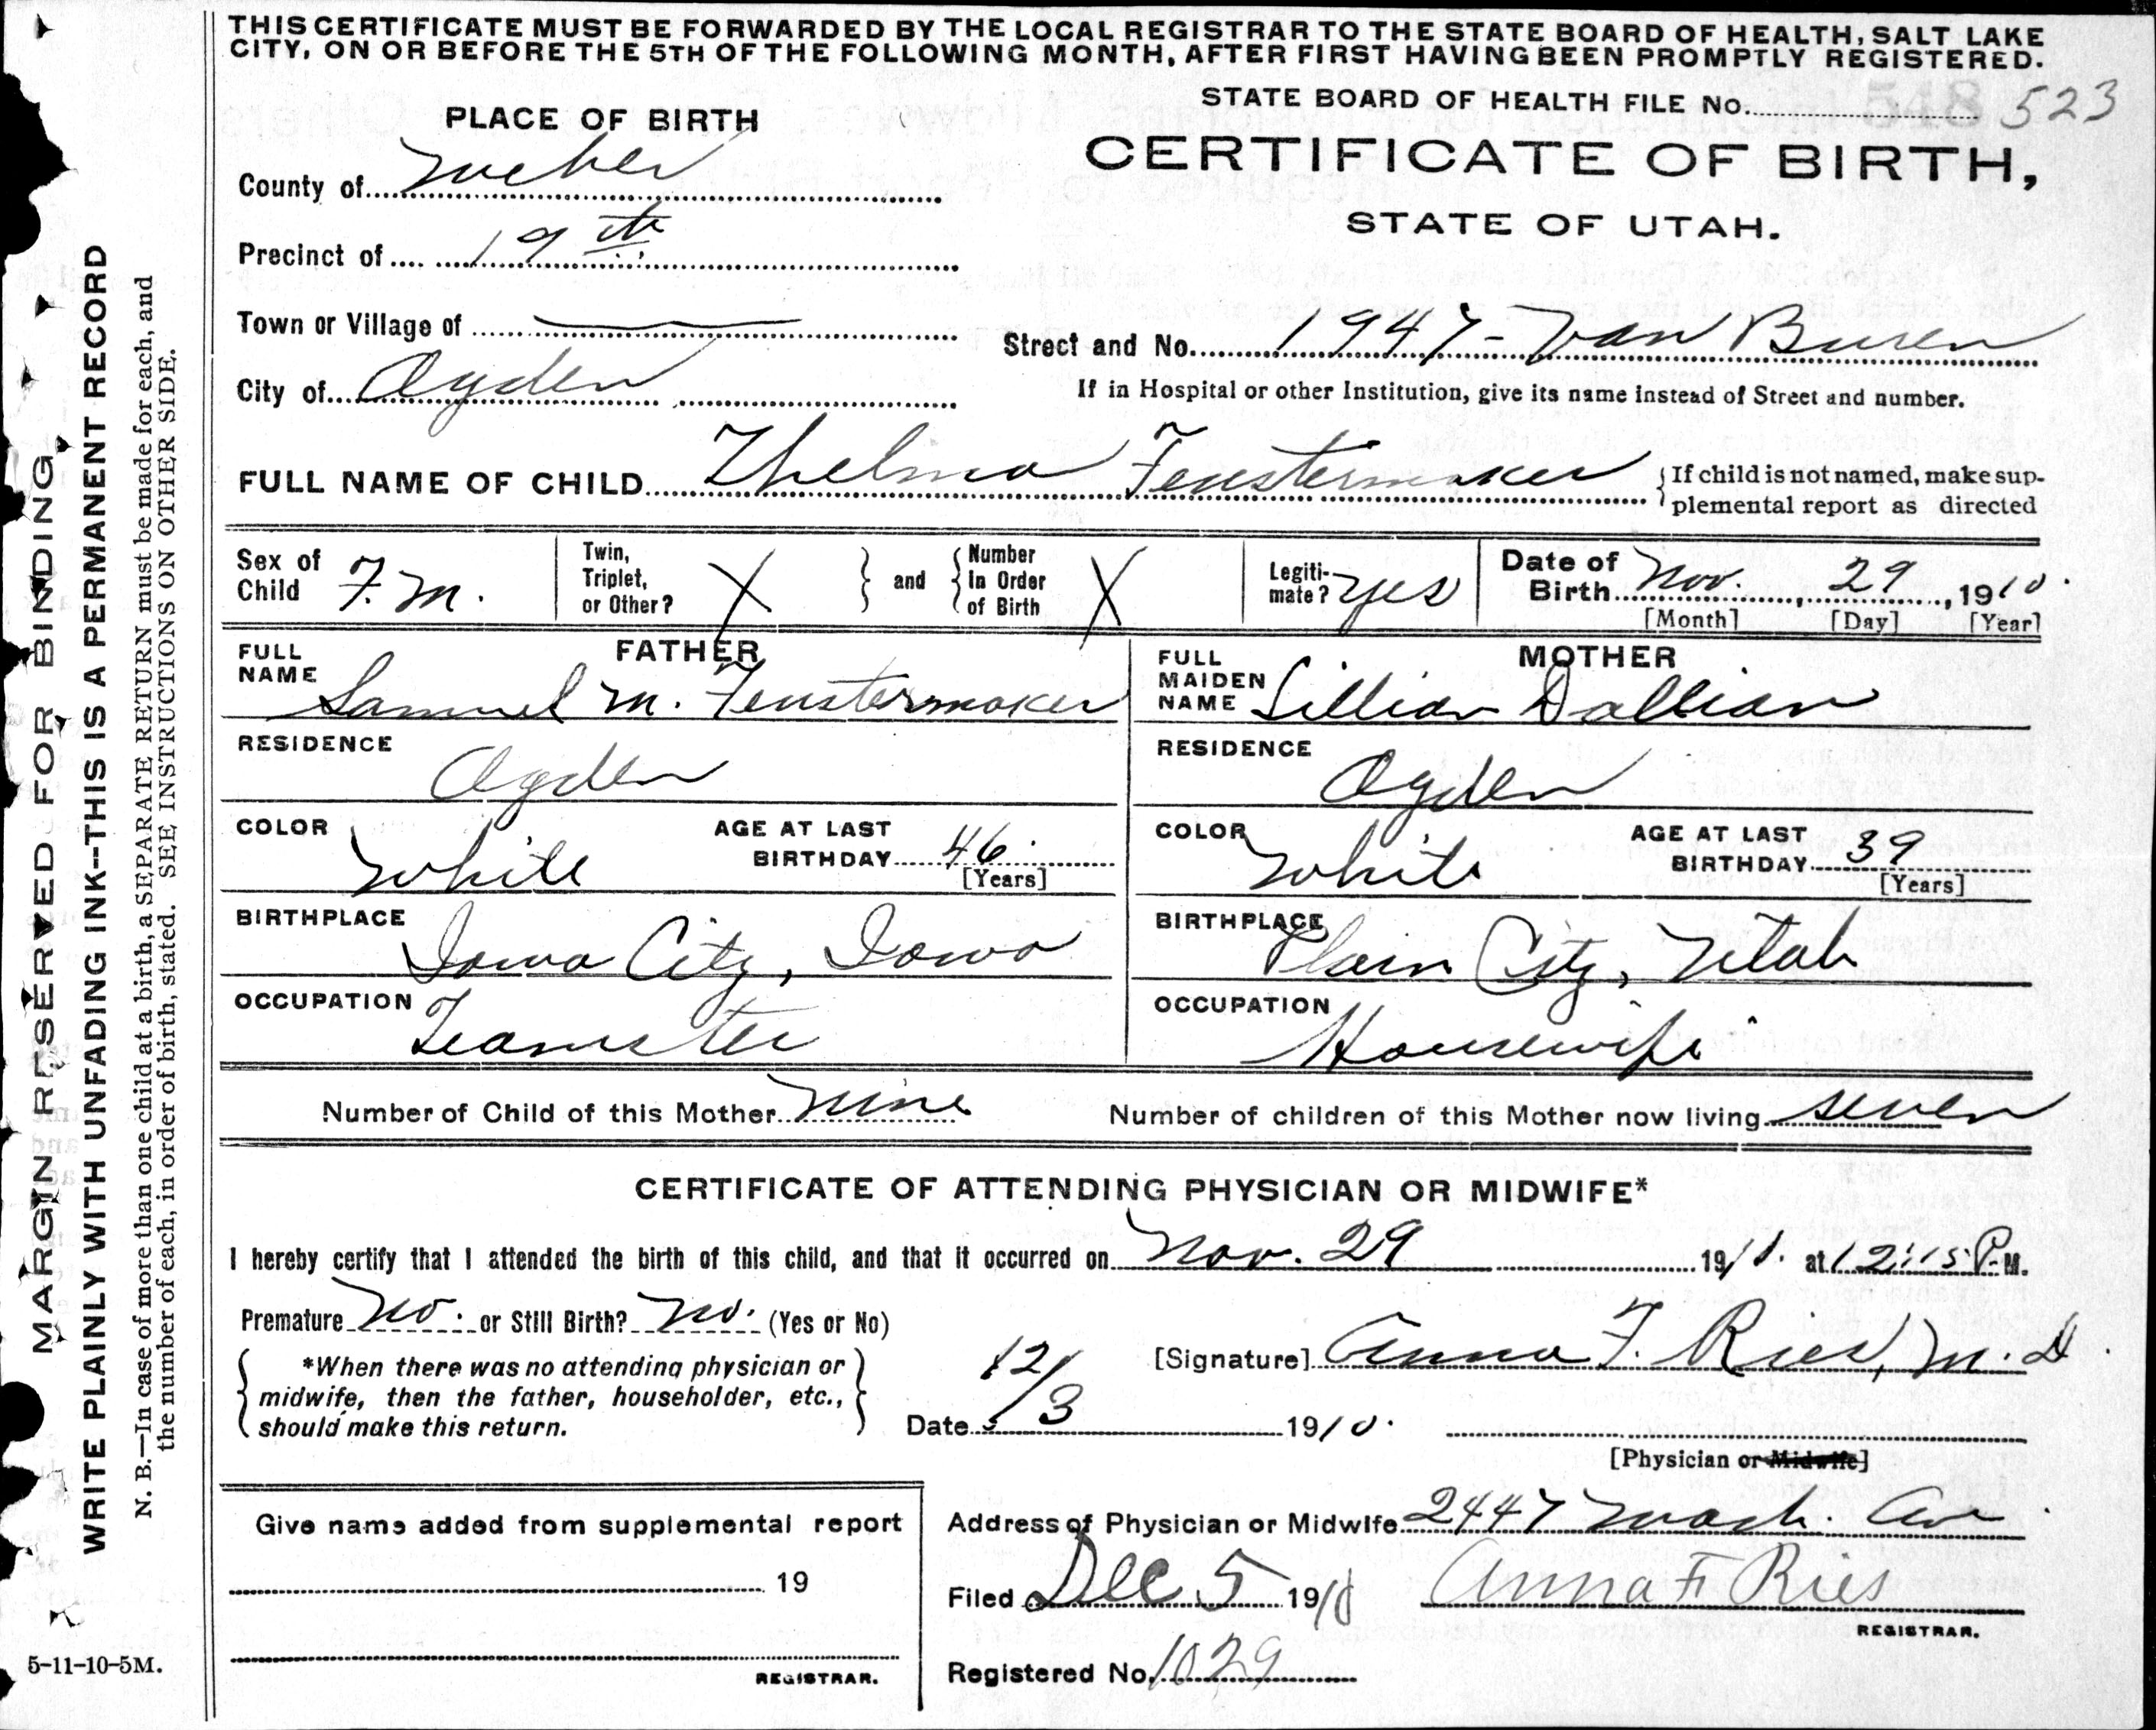 THIS CERTIFICATE MUST BE FORWARDED BY THE LOCAL REGISTRAR TO THE STATE BOARD OF HEALTH, SALT LAKE
CITY, ON OR BEFORE THE 5TH OF THE FOLLOWING MONTH, AFTER FIRST HAVING BEEN PROMPTLY REGISTERED.
STATE BOARD OF HEALTH FILE No. 523
PLACE OF BIRTH
CERTIFICATE OF BIRTH,
STATE OF UTAH.
County of Weber
Precinct of 19th
Town or Village of
Street and No. 1947 - Van Buren
City of Ogden
If in Hospital or other Institution, give its name instead of Street and number.
FULL NAME OF CHILD Thelma Fenstermaker
If child is not named, make sup-
plemental report as directed
Sex of Child F.m.
Twin, Triplet, or Other? X
and Number In Order of Birth X
Legiti-mate? yes
Date of Birth Nov. 29, 1910.
[Month] [Day] [Year]
FATHER
FULL NAME Samuel M. Fenstermaker
RESIDENCE Ogden
COLOR White
AGE AT LAST BIRTHDAY 46 [Years]
BIRTHPLACE Iowa City, Iowa
OCCUPATION Teamster
MOTHER
FULL MAIDEN NAME Lillian Dallian
RESIDENCE Ogden
COLOR White
AGE AT LAST BIRTHDAY 39 [Years]
BIRTHPLACE Plain City, Utah
OCCUPATION Housewife
Number of Child of this Mother nine
Number of children of this Mother now living seven
CERTIFICATE OF ATTENDING PHYSICIAN OR MIDWIFE*
I hereby certify that I attended the birth of this child, and that it occurred on Nov. 29 1910. at 12:15 P.M.
Premature No. or Still Birth? No. (Yes or No)
*When there was no attending physician or
midwife, then the father, householder, etc.,
should make this return.
[Signature] Anna F. Ries, M.D.
Date 12/3 1910.
[Physician or Midwife]
Give name added from supplemental report
19
REGISTRAR.
Address of Physician or Midwife 2447 Wash. Av.
Filed Dec 5 1910 Anna F Ries
REGISTRAR.
Registered No. 1029
MARGIN RESERVED FOR BINDING
WRITE PLAINLY WITH UNFADING INK--THIS IS A PERMANENT RECORD
N. B.—In case of more than one child at a birth, a SEPARATE RETURN must be made for each, and
the number of each, in order of birth, stated. SEE INSTRUCTIONS ON OTHER SIDE.
5-11-10-5M.